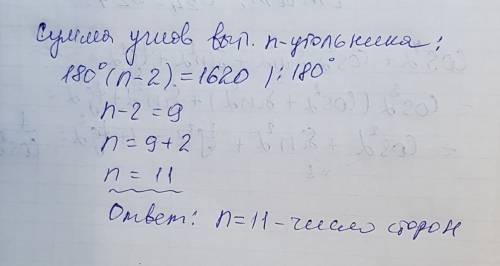 Сумма углов вып. n-угольника:
180°(n-2) = 1620 ) : 180°
n-2 = 9
n = 9+2
n = 11
Ответ: n=11 - число сторон